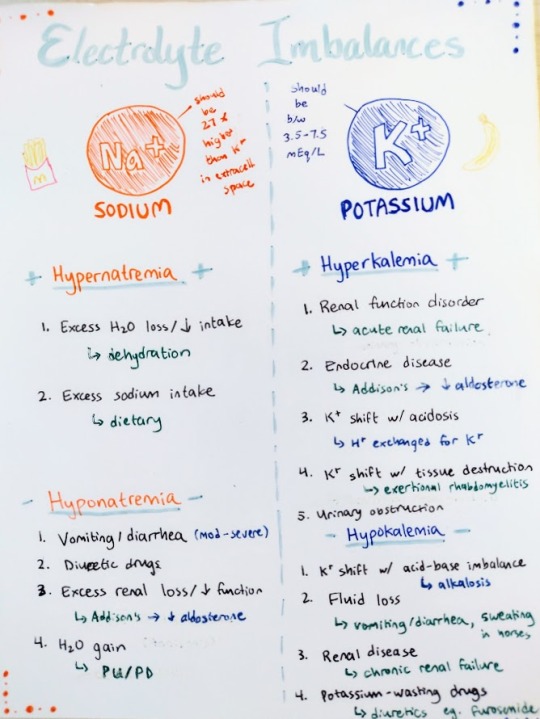 Electrolyte Imbalances
Na+
should
be
27x
higher
than K+
in extracell
space
SODIUM
+ Hypernatremia +
1. Excess H2O loss/↓ intake
↳ dehydration
2. Excess sodium intake
↳ dietary
- Hyponatremia -
1. Vomiting/diarrhea (mod-severe)
2. Diuretic drugs
3. Excess renal loss/↓ function
↳ Addison's → ↓ aldosterone
4. H2O gain
↳ PU/PD
should
be
b/w
3.5-7.5
mEq/L
K+
POTASSIUM
+ Hyperkalemia +
1. Renal function disorder
↳ acute renal failure
2. Endocrine disease
↳ Addison's → ↓ aldosterone
3. K+ shift w/ acidosis
↳ H+ exchanged for K+
4. K+ shift w/ tissue destruction
↳ exertional rhabdomyelitis
5. Urinary obstruction
- Hypokalemia -
1. K+ shift w/ acid-base imbalance
↳ alkalosis
2. Fluid loss
↳ vomiting/diarrhea, sweating
in horses
3. Renal disease
↳ chronic renal failure
4. Potassium-wasting drugs
↳ diuretics eg. furosemide